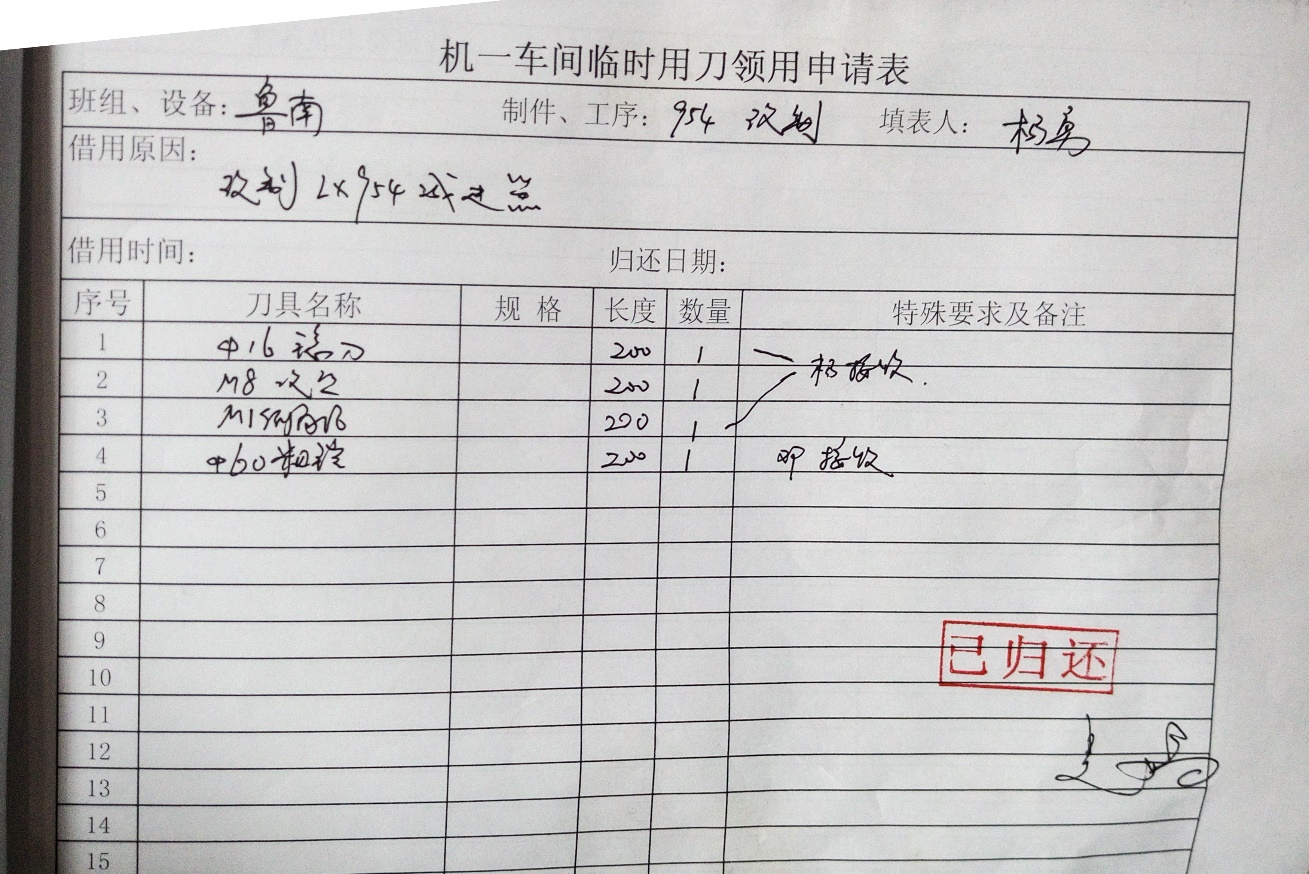 机一车间临时用刀领用申请表
班组、设备: 鲁南 制件、工序: 954 改制 填表人: 杨勇
借用原因:
改制 LX954
借用时间: 归还日期:
序号 刀具名称 规 格 长度 数量 特殊要求及备注
1 Φ16 刀 200 1
2 M8 200 1 杨接收.
3 200 1
4 Φ60粗镗 200 1 接收
5
6
7
8
9
已归还
10
11
12
13
14
15